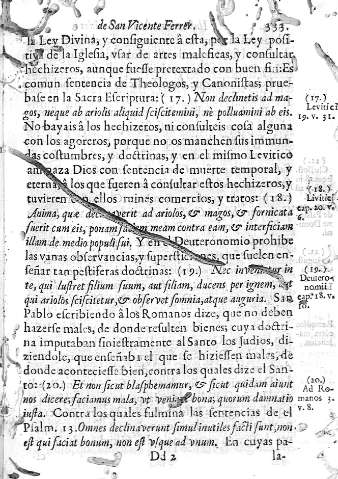 de San Vicente Ferrer. 333.
la Ley Divina, y consiguiente à esta, por la Ley posi-
tiva de la Iglesia, vsar de artes maleficas, y consultar
hechizeros, aunque fuesse pretextado con buen fin: Es
comun sentencia de Theologos, y Canonistas: prue-
base en la Sacra Escriptura: (17.) Non declinetis ad ma-
gos, neque ab ariolis aliquid sciscitemini, nè polluamini ab eis.
No bayais à los hechizeros, ni consulteis cosa alguna
con los agoreros, porque no os manchen sus inmun-
das costumbres, y doctrinas, y en el mismo Levitico
amenaza Dios con sentencia de muerte temporal, y
eterna, à los que fueren à consultar estos hechizeros, y
tuvieren con ellos ruines comercios, y tratos: (18.)
Anima, quæ declinaverit ad ariolos, & magos, & fornicata
fuerit cum eis, ponam faciem meam contra eam, & interficiam
illam de medio populi sui. Y en el Deuteronomio prohibe
las vanas observancias, y supersticiones, que suelen en-
señar tan pestiferas doctrinas: (19.) Nec inveniatur in
te, qui lustret filium suum, aut filiam, ducens per ignem, aut
qui ariolos sciscitetur, & observet somnia, atque auguria. San
Pablo escribiendo à los Romanos dize, que no deben
hazerse males, de donde resulten bienes, cuya doctri-
na imputaban siniestramente al Santo los Judios, di-
ziendole, que enseñaba el que se hiziessen males, de
donde aconteciesse bien, contra los quales dize el San-
to: (20.) Et non sicut blasphemamur, & sicut quidam aiunt
nos dicere; faciamus mala, vt veniant bona; quorum damnatio
iusta. Contra los quales fulmina las sentencias de el
Psalm. 13. Omnes declinaverunt simul inutiles facti sunt, non
est qui faciat bonum, non est vsque ad vnum. En cuyas pa-
Dd 2 la-
(17.)
Levitici
19. v. 31.
(18.)
Levitic.
cap. 20. v.
6.
(19.)
Deutero-
nomii
cap. 18. v.
(20.)
Ad Ro-
manos 3.
v. 8.